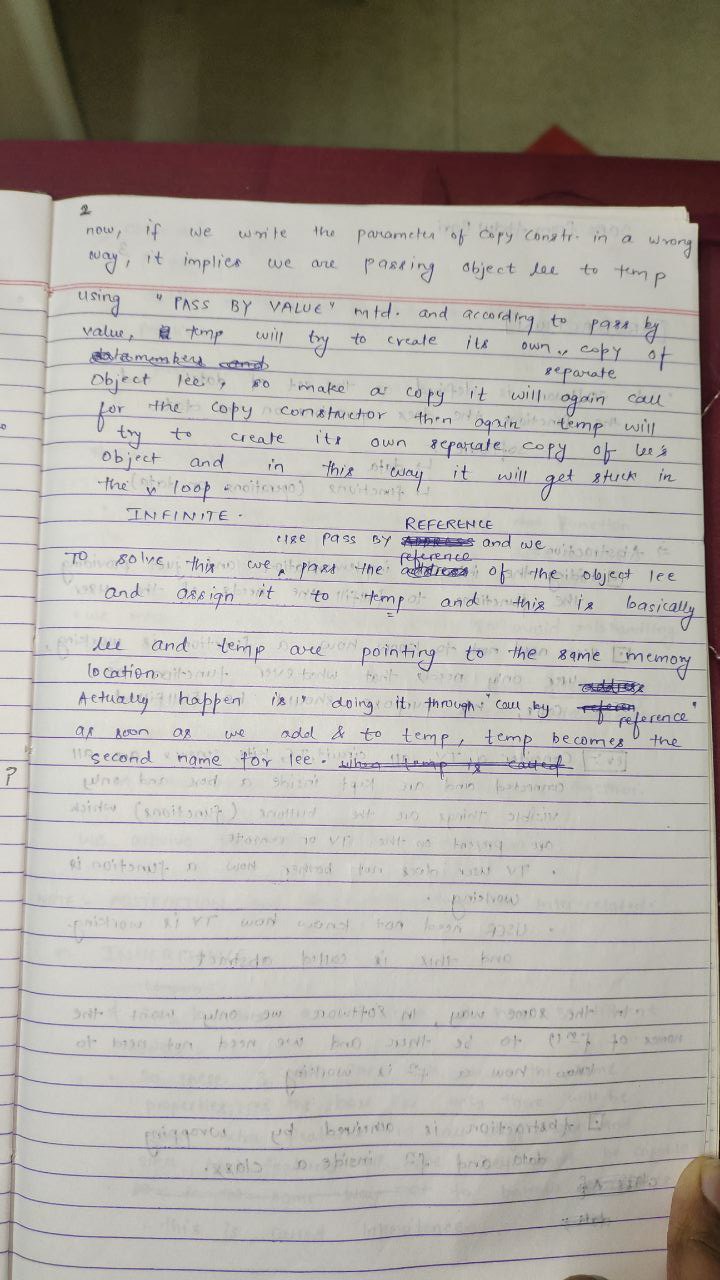 2
now, if we write the parameter of copy constr. in a wrong
way, it implies we are passing object lee to temp
using "PASS BY VALUE" mtd. and according to pass by
value, temp will try to create its own copy of
separate
object lee, so make a copy it will again call
for the copy constructor then again temp will
try to create its own separate copy of lee's
object and in this way it will get stuck in
the loop.
INFINITE.
REFERENCE
use PASS BY and we
reference
To solve this we pass the of the object lee
and assign it to temp and this is basically
lee and temp are pointing to the same memory
location
Actually happen is doing it through "call by reference"
as soon as we add & to temp, temp becomes the
second name for lee.
?